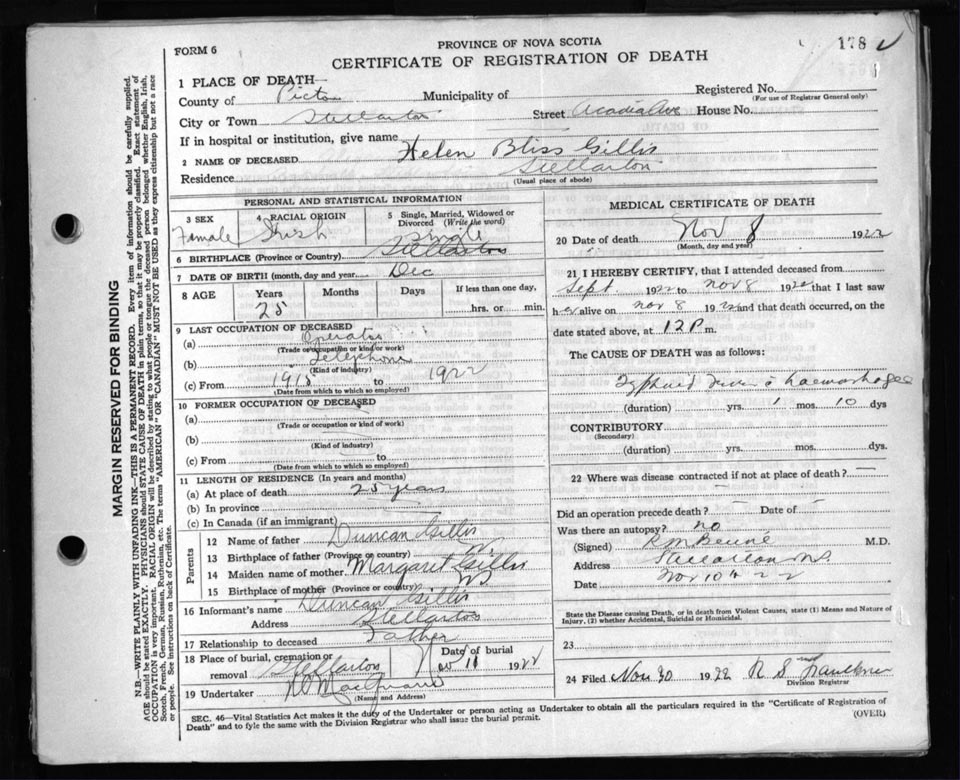 178
FORM 6
PROVINCE OF NOVA SCOTIA
CERTIFICATE OF REGISTRATION OF DEATH
MARGIN RESERVED FOR BINDING
N.B.—WRITE PLAINLY WITH UNFADING INK—THIS IS A PERMANENT RECORD. Every item of information should be carefully supplied.
AGE should be stated EXACTLY. PHYSICIANS should STATE CAUSE OF DEATH in plain terms, so that it may be properly classified. Exact statement of
OCCUPATION is very important. RACIAL ORIGIN will be described by stating to what people or tongue the deceased person belonged whether English, Irish,
Scotch, French, German, Russian, Ruthenian, etc. The terms "AMERICAN" OR "CANADIAN" MUST NOT BE USED as they express citizenship but not a race
or people. See instructions on back of Certificate.
1 PLACE OF DEATH—
Registered No.
(For use of Registrar General only)
County of Pictou Municipality of
City or Town Stellarton Street Acadia Ave House No.
If in hospital or institution, give name
2 NAME OF DECEASED Helen Bliss Gillis
Residence Stellarton
(Usual place of abode)
PERSONAL AND STATISTICAL INFORMATION
3 SEX
Female
4 RACIAL ORIGIN
Irish
5 Single, Married, Widowed or
Divorced (Write the word)
Single
6 BIRTHPLACE (Province or Country) Stellarton
7 DATE OF BIRTH (month, day and year) Dec
8 AGE Years Months Days If less than one day,
25 hrs. or min.
9 LAST OCCUPATION OF DECEASED
(a) Operator
(Trade or occupation or kind of work)
(b) Telephone
(Kind of industry)
(c) From 1915 to 1922
(Date from which to which so employed)
10 FORMER OCCUPATION OF DECEASED
(a)
(Trade or occupation or kind of work)
(b)
(Kind of industry)
(c) From to
(Date from which to which so employed)
11 LENGTH OF RESIDENCE (In years and months)
(a) At place of death 25 years
(b) In province
(c) In Canada (if an immigrant)
Parents
12 Name of father Duncan Gillis
13 Birthplace of father (Province or country)
14 Maiden name of mother Margaret Gillis
15 Birthplace of mother (Province or country) NS
16 Informant's name Duncan Gillis
Address Stellarton
17 Relationship to deceased Father
18 Place of burial, cremation or
removal Stellarton
Date of burial
Nov 11 1922
19 Undertaker
(Name and Address)
MEDICAL CERTIFICATE OF DEATH
20 Date of death Nov 8 1922
(Month, day and year)
21 I HEREBY CERTIFY, that I attended deceased from
Sept. 1922 to Nov 8 1922 that I last saw
her alive on Nov 8 1922 and that death occurred, on the
date stated above, at 12 P m.
The CAUSE OF DEATH was as follows:
Typhoid Fever haemorrhage
(duration) yrs. 1 mos. 10 dys
CONTRIBUTORY
(Secondary)
(duration) yrs. mos. dys.
22 Where was disease contracted if not at place of death? —
Did an operation precede death? — Date of —
Was there an autopsy? no
(Signed) M.D.
Address Stellarton N.S.
Date Nov 10th 22
State the Disease causing Death, or in death from Violent Causes, state (1) Means and Nature of
Injury, (2) whether Accidental, Suicidal or Homicidal.
23
24 Filed Nov 30 1922 R S Faulkner
Division Registrar
SEC. 46—Vital Statistics Act makes it the duty of the Undertaker or person acting as Undertaker to obtain all the particulars required in the "Certificate of Registration of
Death" and to fyle the same with the Division Registrar who shall issue the burial permit.
(OVER)